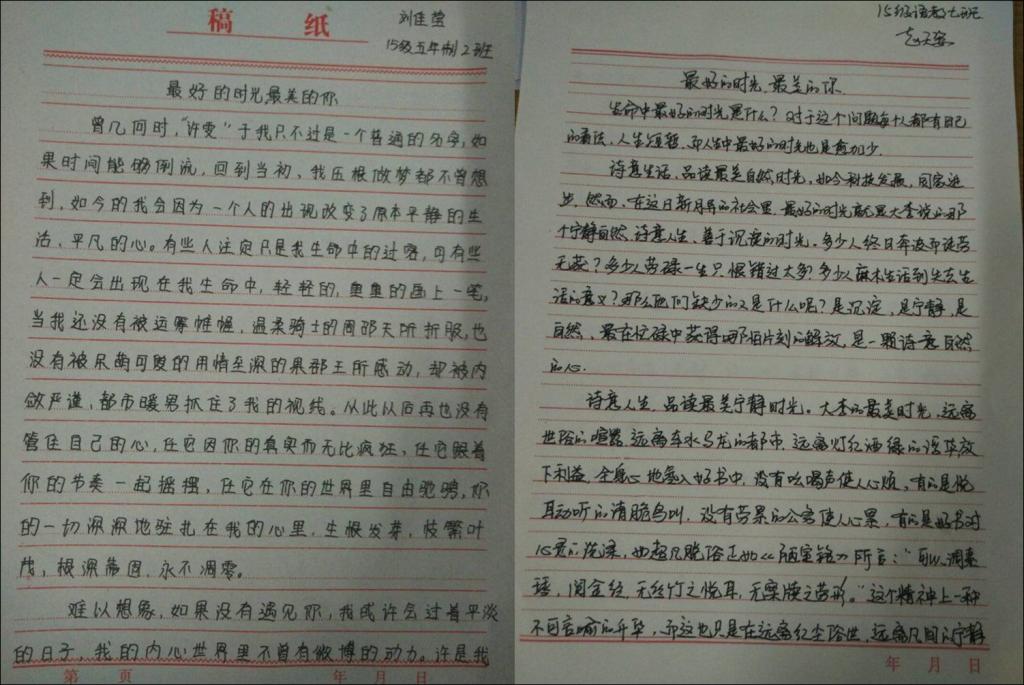 稿 纸
刘佳莹
15级五年制2班
最好的时光,最美的你
曾几何时,“许雯”于我只不过是一个普通的名字,如
果时间能够倒流,回到当初,我压根做梦都不曾想
到,如今的我会因为一个人的出现改变了原本平静的生
活、平凡的心。有些人注定只是我生命中的过客,可有些
人一定会出现在我生命中,轻轻的,重重的画上一笔。
当我还没有被运筹帷幄,温柔骑士的周邵天所折服,也
没有被呆萌可爱的用情至深的果郡王所感动,却被内
敛严谨,都市暖男抓住了我的视线。从此以后再也没有
管住自己的心,任它因你的真实而无比疯狂,任它跟着
你的节奏一起摇摆,任它在你的世界里自由驰骋,你
的一切深深地驻扎在我的心里,生根发芽,枝繁叶
茂,根深蒂固,永不凋零。
难以想象,如果没有遇见你,我或许会过着平淡
的日子,我的内心世界里不曾有微博的动力。许是我
第 页 年 月 日
15级语教七班
最好的时光,最美的你
生命中最好的时光是什么?对于这个问题每个人都有自己
的看法,人生短暂,而人生中最好的时光也是愈加少.
诗意生活,品读最美自然时光,如今科技发展,国家进
步,然而,在这日新月异的社会里,最好的时光就是大李说的那
个宁静自然,诗意人生,善于沉淀的时光。多少人终日奔波却徒劳
无获?多少人劳碌一生只恨错过太多?多少麻木生活到失去生
活的意义?那么他们缺少的又是什么呢?是沉淀,是宁静,是
自然,最在忙碌中获得那怕片刻的解放,是一颗诗意自然
的心.
诗意人生,品读最美宁静时光。大李的最美时光,远离
世俗的喧嚣,远离车水马龙的都市,远离灯红酒绿的浮华放
下利益,全身心地融入好书中,没有吆喝声使人心烦,有的是悦
耳动听的清脆鸟叫,没有劳累的公务使人心累,有的是好书对
心灵的洗涤,如超凡脱俗正如《陋室铭》所言:“可以调素
琴,阅金经,无丝竹之悦耳,无案牍之劳形。”这个精神上一种
不可言喻的升华,而这也只是在远离红尘俗世,远离凡间的宁静
年 月 日